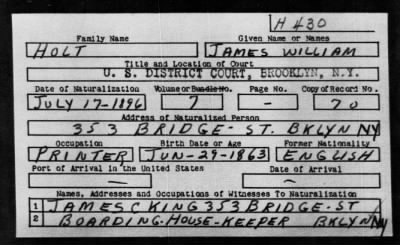 H 430
Family Name Given Name or Names
HOLT JAMES WILLIAM
Title and Location of Court
U. S. DISTRICT COURT, BROOKLYN, N.Y.
Date of Naturalization Volume or Bundle No. Page No. Copy of Record No.
JULY 17-1896 7 - 70
Address of Naturalized Person
353 BRIDGE-ST. BKLYN NY
Occupation Birth Date or Age Former Nationality
PRINTER JUN-29-1863 ENGLISH
Port of Arrival in the United States Date of Arrival
— —
Names, Addresses and Occupations of Witnesses To Naturalization
1 JAMES C KING 353 BRIDGE-ST
2 BOARDING-HOUSE-KEEPER BKLYN NY